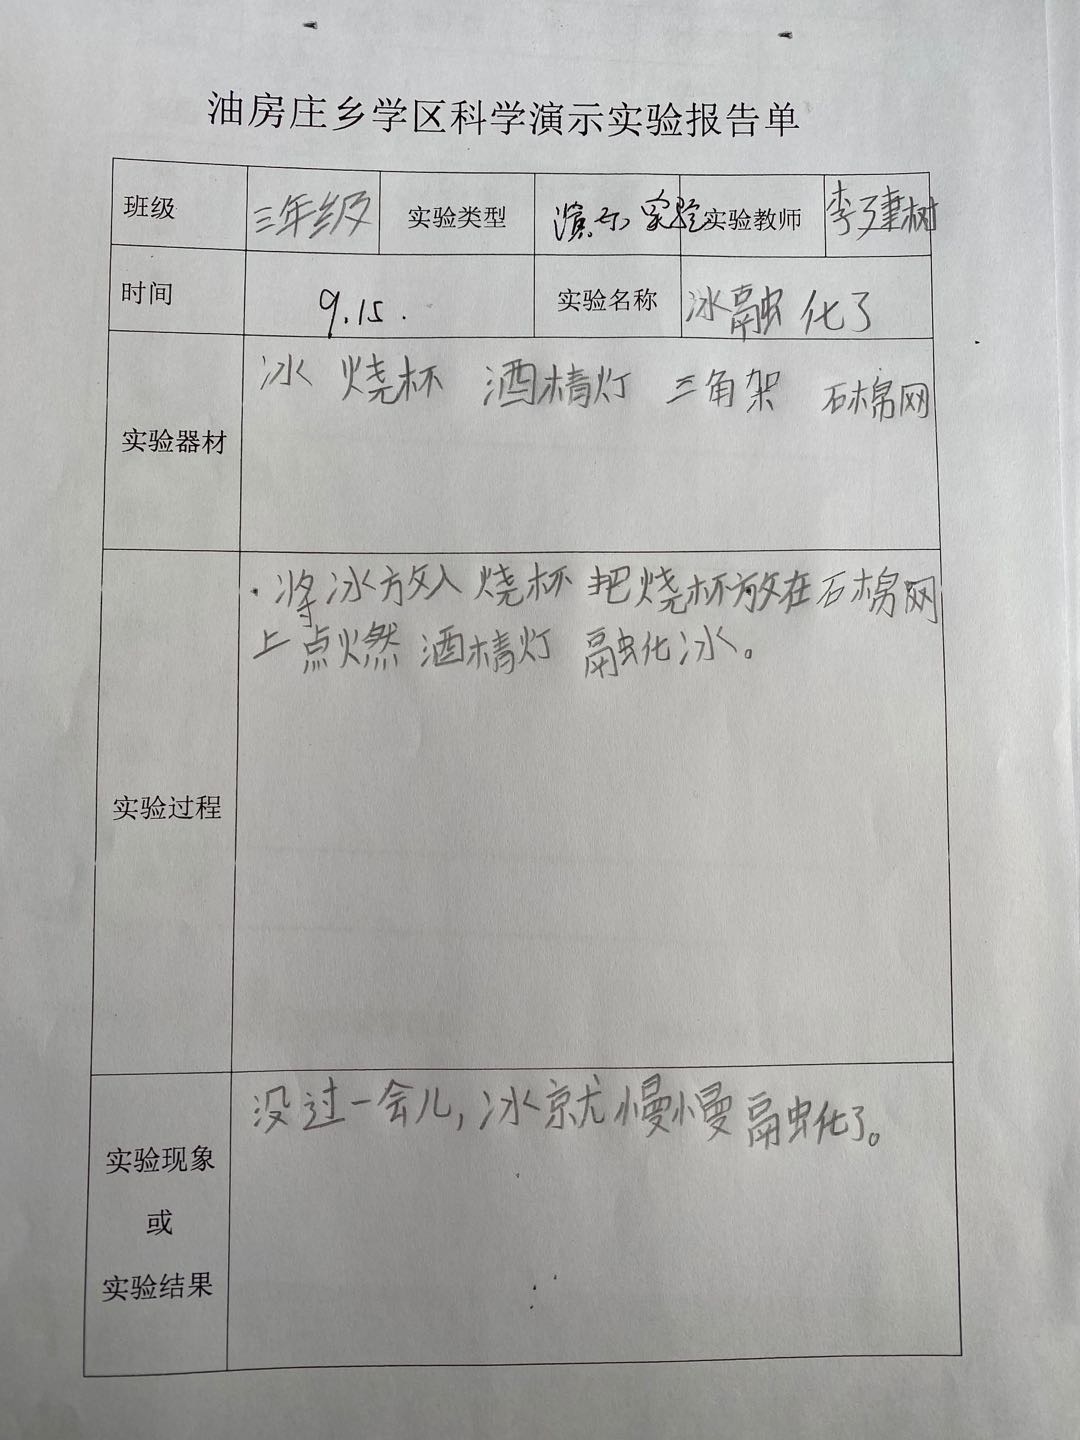 油房庄乡学区科学演示实验报告单
班级 三年级 实验类型 演示实验 实验教师 李建树
时间 9.15. 实验名称 冰融化了
实验器材 冰 烧杯 酒精灯 三角架 石棉网
将冰放入烧杯 把烧杯放在石棉网
上点燃 酒精灯 融化冰。
实验过程
没过一会儿,冰就慢慢融化了。
实验现象
或
实验结果